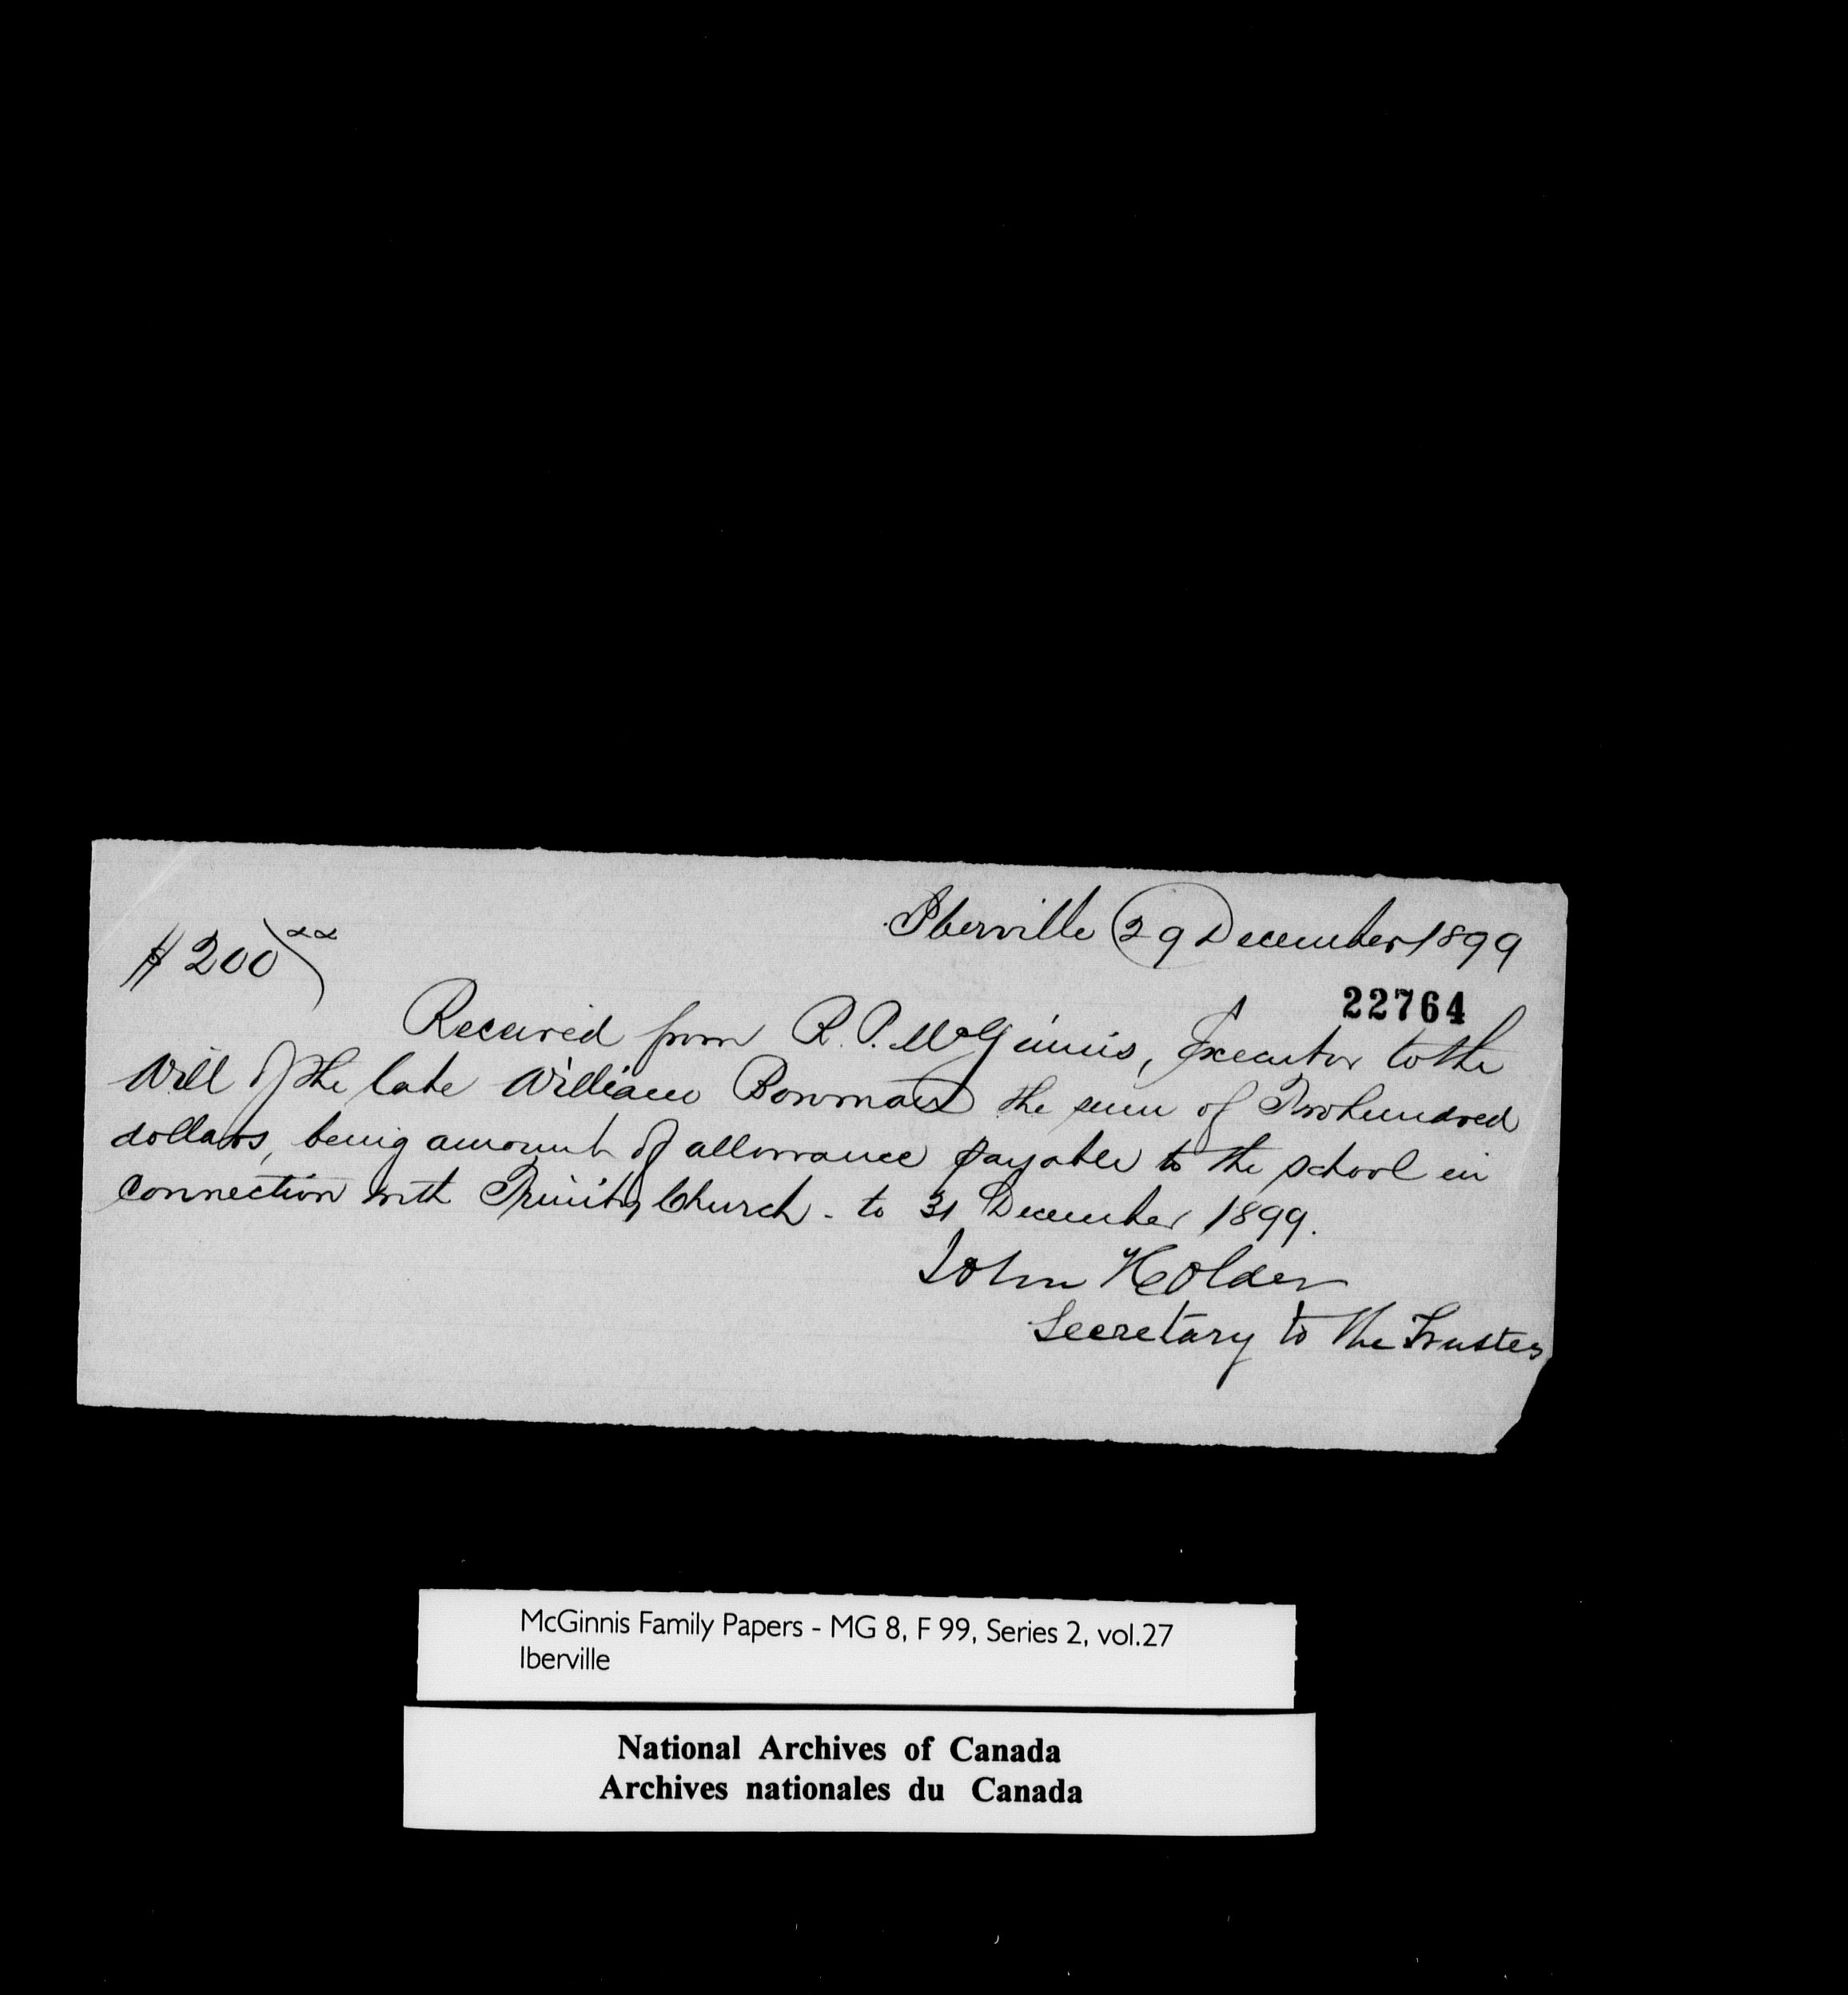 Iberville 29 December 1899
$200 00
22764
Received from R. P. McGinnis, Executor to the
Will of the late William Bowman the sum of Two hundred
dollars, being amount of allowance payable to the school in
connection with Trinity Church - to 31 December 1899.
John Holder
Secretary to the Trustees
McGinnis Family Papers - MG 8, F 99, Series 2, vol.27
Iberville
National Archives of Canada
Archives nationales du Canada